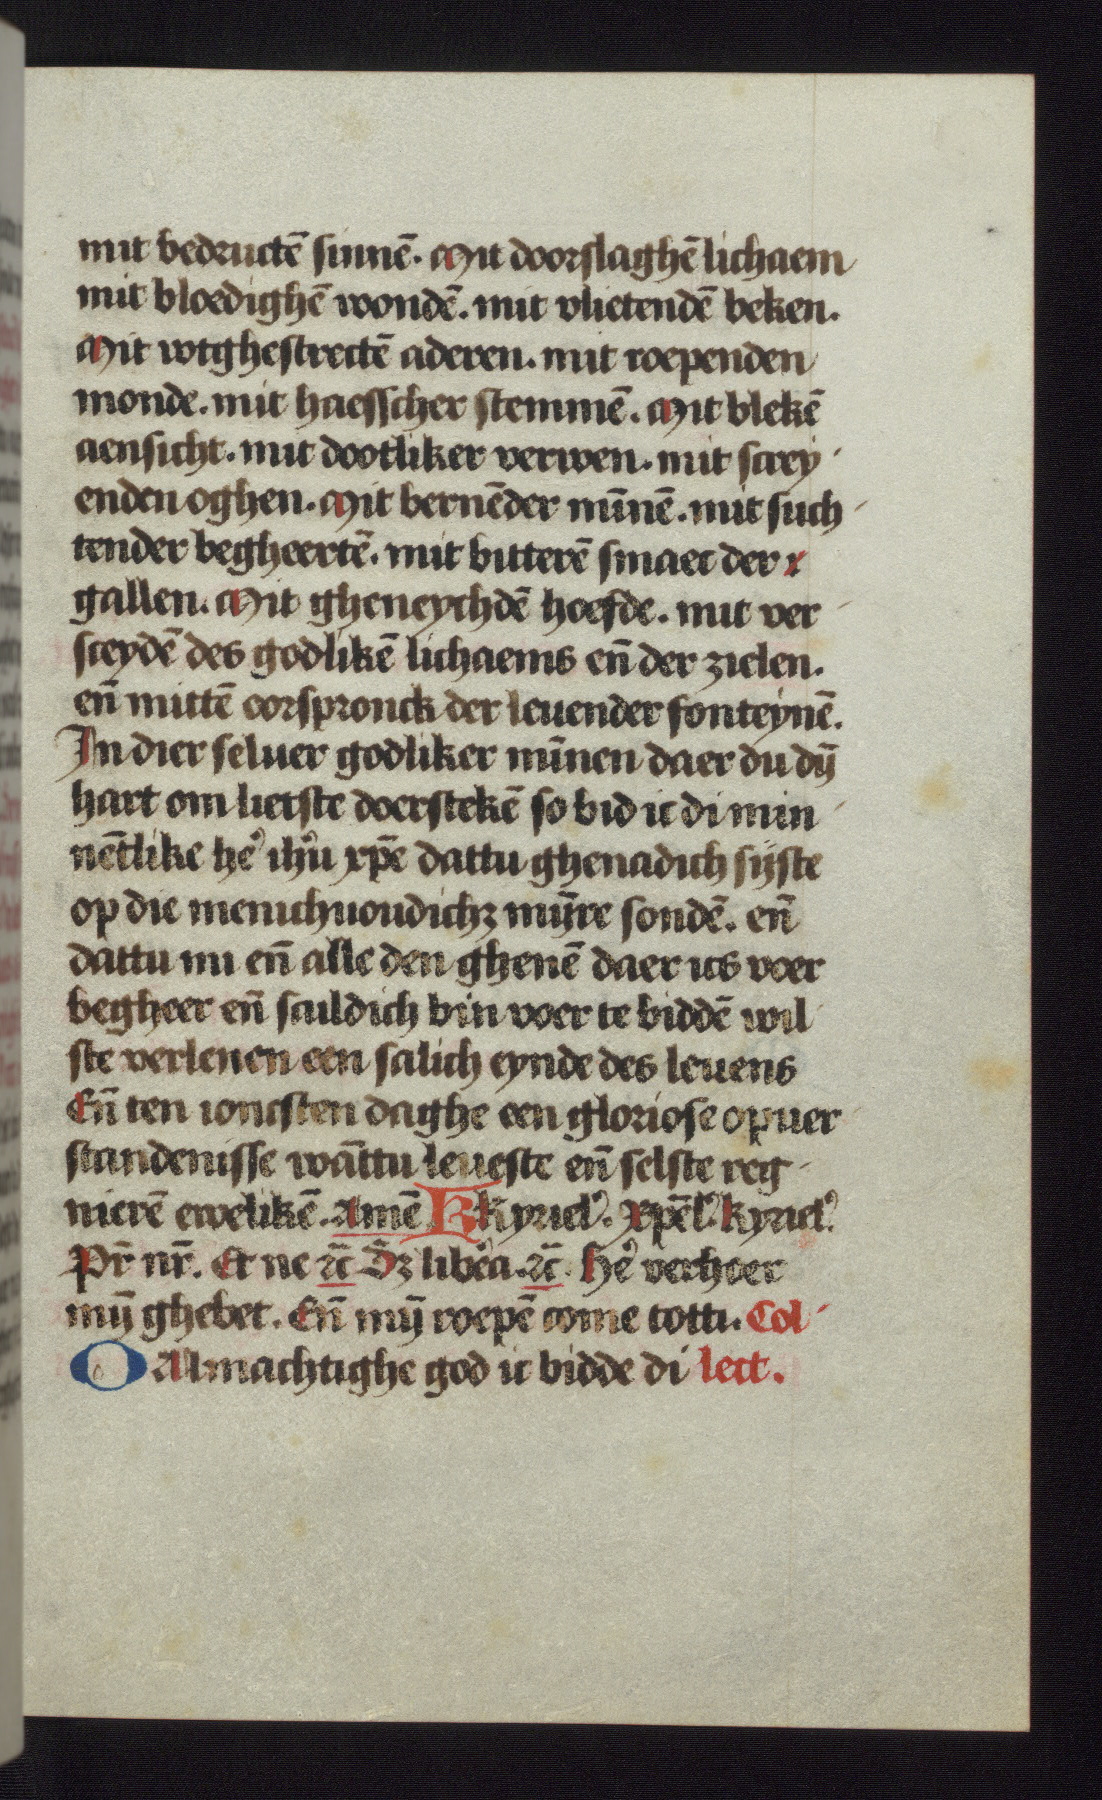 mit bedructē sinnē. Mit doorslaghē lichaem
mit bloedighē wondē. mit vlietendē beken.
Mit wtghestrectē aderen. mit roependen
monde. mit haesscher stemmē. Mit blekē
aensicht. mit dootliker verwen. mit screy
enden oghen. Mit bernēder mīnē. mit such
tender begheertē. mit bitterē smaec der
gallen. Mit gheneychdē hoefde. mit ver
sceydē des godlikē lichaems en̄ der zielen.
en̄ mittē oorspronck der leuender fonteynē.
In dier seluer godliker mīnen daer du dȳ
hart om lietste doerstekē so bid ic di min
nētlike heᷣ ihuᷣ xp̄e dattu ghenadich sijste
op die menichuoudichz mijn̄re sondē. en̄
dattu mi en̄ alle den ghenē daer ics voer
begheer en̄ sculdich bin voer te biddē wil
ste verlenen een salich eynde des leuens
En̄ ten ioncsten daghe een gloriose opuer
standenisse wāttu leueste en̄ selste reg
nierē ewelikē. Amē Kyriel᷒. Xp̄el᷒. kyriel᷒.
Pr̄ nr̄. Et ne ⁊c̄ Dz̄ libeᷣa. ⁊c̄. heᷣ verhoer
mȳ ghebet. En̄ mȳ roepē come totti. Col
O Almachtighe god ic bidde di lect.